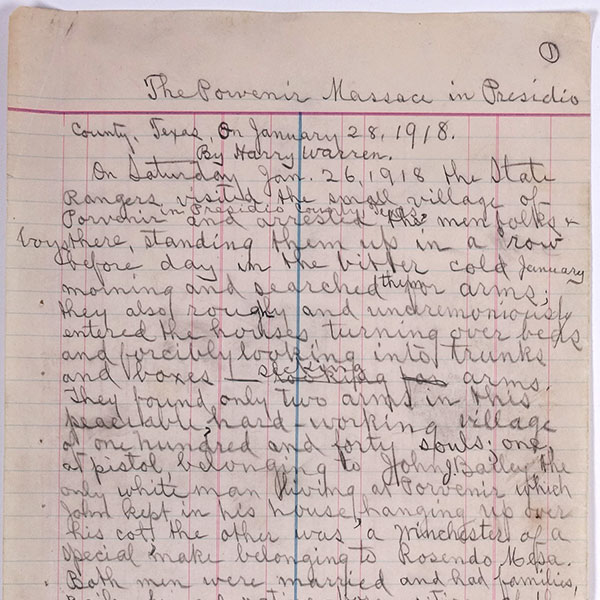 1
The Porvenir Massace in Presidio
County, Texas, On January 28, 1918.
By Harry Warren.
On Saturday Jan. 26, 1918 the State
Rangers visited the small village of
in Presidio County Texas
Porvenir and arrested the menfolks &
boys there, standing them up in a row
before day in the bitter cold January
morning and searched them for arms,
they also roughly and unceremoniously
entered the houses turning over beds
and forcibly looking into trunks
and boxes seeking arms.
They found only two arms in this
peaceable, hard-working village
of one hundred and forty souls; one,
a pistol, belonging to John Bailey the
only white man living at Porvenir which
John kept in his house, hanging up over
his cot, the other was a Winchester of a
special make belonging to Rosendo Mesa.
Both men were married and had families,